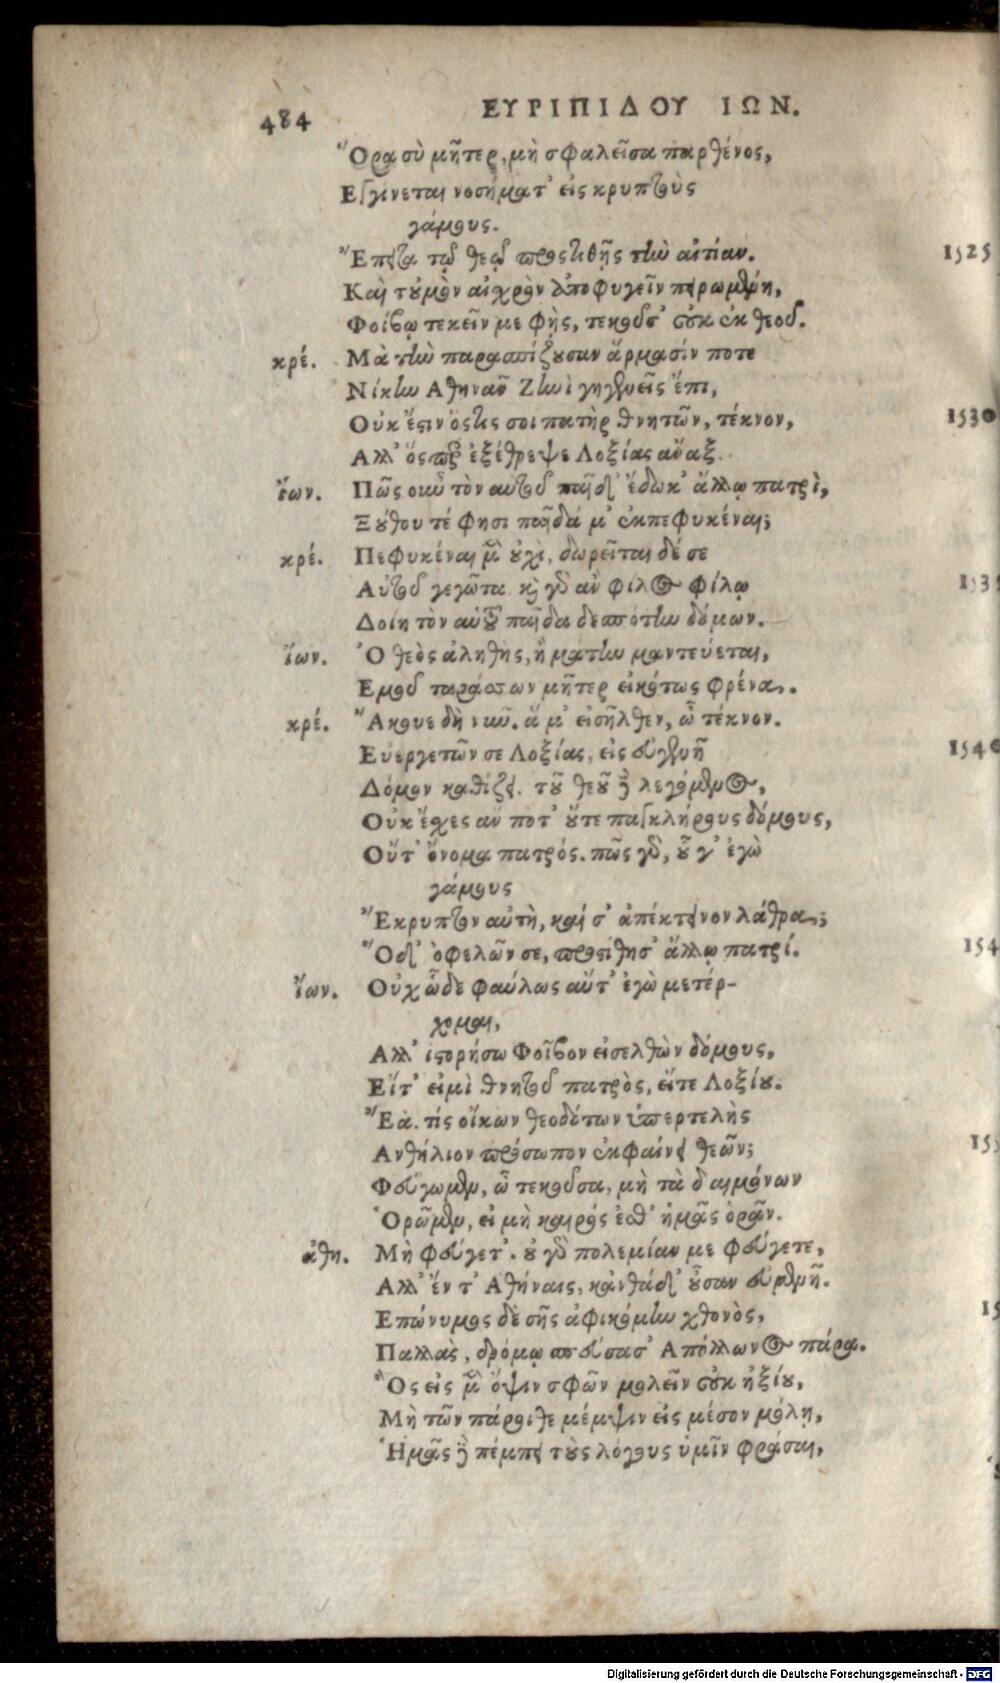 484 ΕΥΡΙΠΙΔΟΥ ΙΩΝ.
Ὅρα σὺ μῆτερ, μὴ σφαλεῖσα παρθένος,
Εγγίνεται νοσήματ' εἰς κρυπτοὺς
γάμους.
Ἔπειτα τῷ θεῷ προςτιθῇς τὴν αἰτίαν.
Καὶ τοὐμὸν αἰχρὸν ἀποφυγεῖν πειρωμένη,
Φοίβῳ τεκεῖν με φὴς, τεκοῦσ' οὐκ ἐκ θεοῦ.
κρέ. Μὰ τὴν παρασπίζουσαν ἅρμασίν ποτε
Νίκην Αθηνᾶν Ζηνὶ γηγενεῖς ἔπι, 1525
Οὐκ ἔστιν ὅστις σοι πατὴρ θνητῶν, τέκνον, 1530
Αλλ' ὅςπερ ἐξέθρεψε Λοξίας ἄναξ.
ἴων. Πῶς οὖν τὸν αὑτοῦ παῖδ' ἔδωκ' ἄλλῳ πατρὶ,
Ξούθου τέ φησι παῖδά μ' ἐκπεφυκέναι;
κρέ. Πεφυκέναι μὲν οὐχὶ, δωρεῖται δέ σε
Αὑτοῦ γεγῶτα. καὶ γὰρ ἂν φίλος φίλῳ 153
Δοίη τὸν αὑτοῦ παῖδα δεσπότην δόμων.
ἴων. Ὁ θεὸς ἀληθὴς, ἢ μάτην μαντεύεται,
Εμοῦ ταράσσων μῆτερ εἰκότως φρένα.
κρέ. Ἄκουε δὴ νῦν. ἅ μ' εἰσῆλθεν, ὦ τέκνον.
Εὐεργετῶν σε Λοξίας, εἰς εὐγενῆ 154
Δόμον καθίζει. τοῦ θεοῦ δὲ λεγόμενος,
Οὐκ ἔχες ἄν ποτ' οὔτε παγκλήρους δόμους,
Οὔτ' ὄνομα πατρός. πῶς γὰρ, οὗ γ' ἐγὼ
γάμους
Ἔκρυπτον αὐτὴ, καί σ' ἀπέκτεινον λάθρα;
Ὅδ' ὀφελῶν σε, προςίθησ' ἄλλῳ πατρί. 154
ἴων. Οὐχ ὧδε φαύλως αὔτ' ἐγὼ μετέρ-
χομαι,
Αλλ' ἱστορήσω Φοῖβον εἰσελθὼν δόμους,
Εἴτ' εἰμὶ θνητοῦ πατρὸς, εἴτε Λοξίου.
Ἔα. τίς οἴκων θεοδότων ὑπερτελὴς
Ανθήλιον πρόσωπον ἐκφαίνει θεῶν; 155
Φεύγωμεν, ὦ τεκοῦσα, μὴ τὰ δαιμόνων
Ὁρῶμεν, εἰ μὴ καιρός ἐσθ' ἡμᾶς ὁρᾶν.
ἀθη. Μὴ φεύγετ'. οὐ γὰρ πολεμίαν με φεύγετε,
Αλλ' ἔν τ' Αθήναις, κἀνθάδ' οὖσαν εὐμενῆ.
Επώνυμος δὲ σῆς ἀφικόμην χθονὸς, 15
Παλλὰς, δρόμῳ σπεύσασ' Απόλλωνος πάρα.
Ὃς εἰς μὲν ὄψιν σφῶν μολεῖν οὐκ ἠξίου,
Μὴ τῶν πάροιθε μέμψιν εἰς μέσον μόλῃ,
Ἡμᾶς δὲ πέμπει τοὺς λόγους ὑμῖν φράσαι,
Digitalisierung gefördert durch die Deutsche Forschungsgemeinschaft - DFG